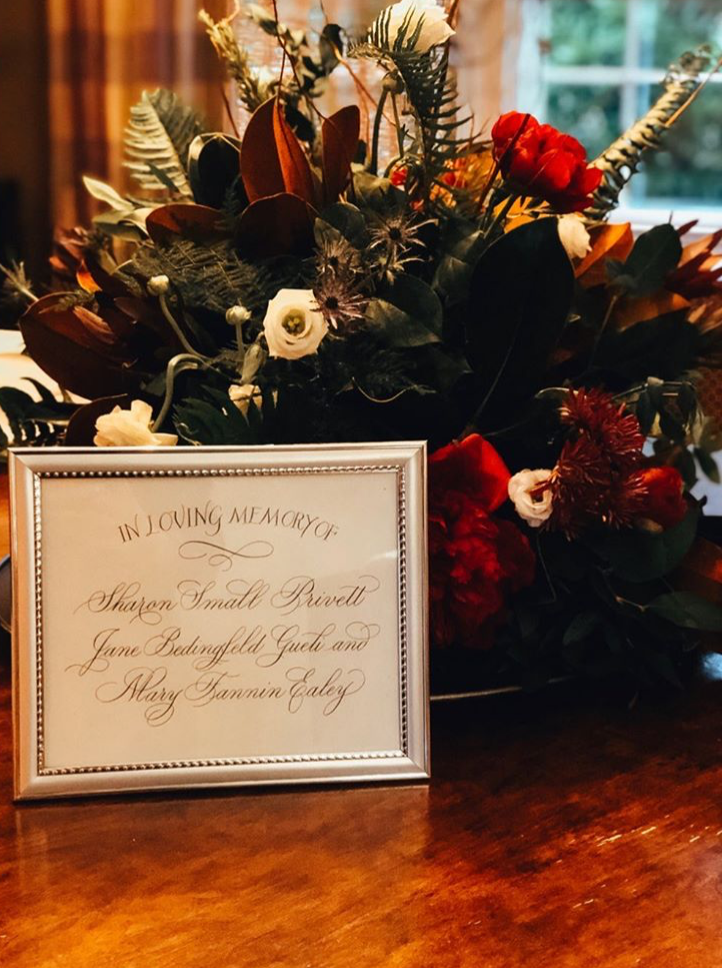 IN LOVING MEMORY OF
Sharon Small Privett
Jane Bedingfield Gueli and
Mary Fannin Ealey